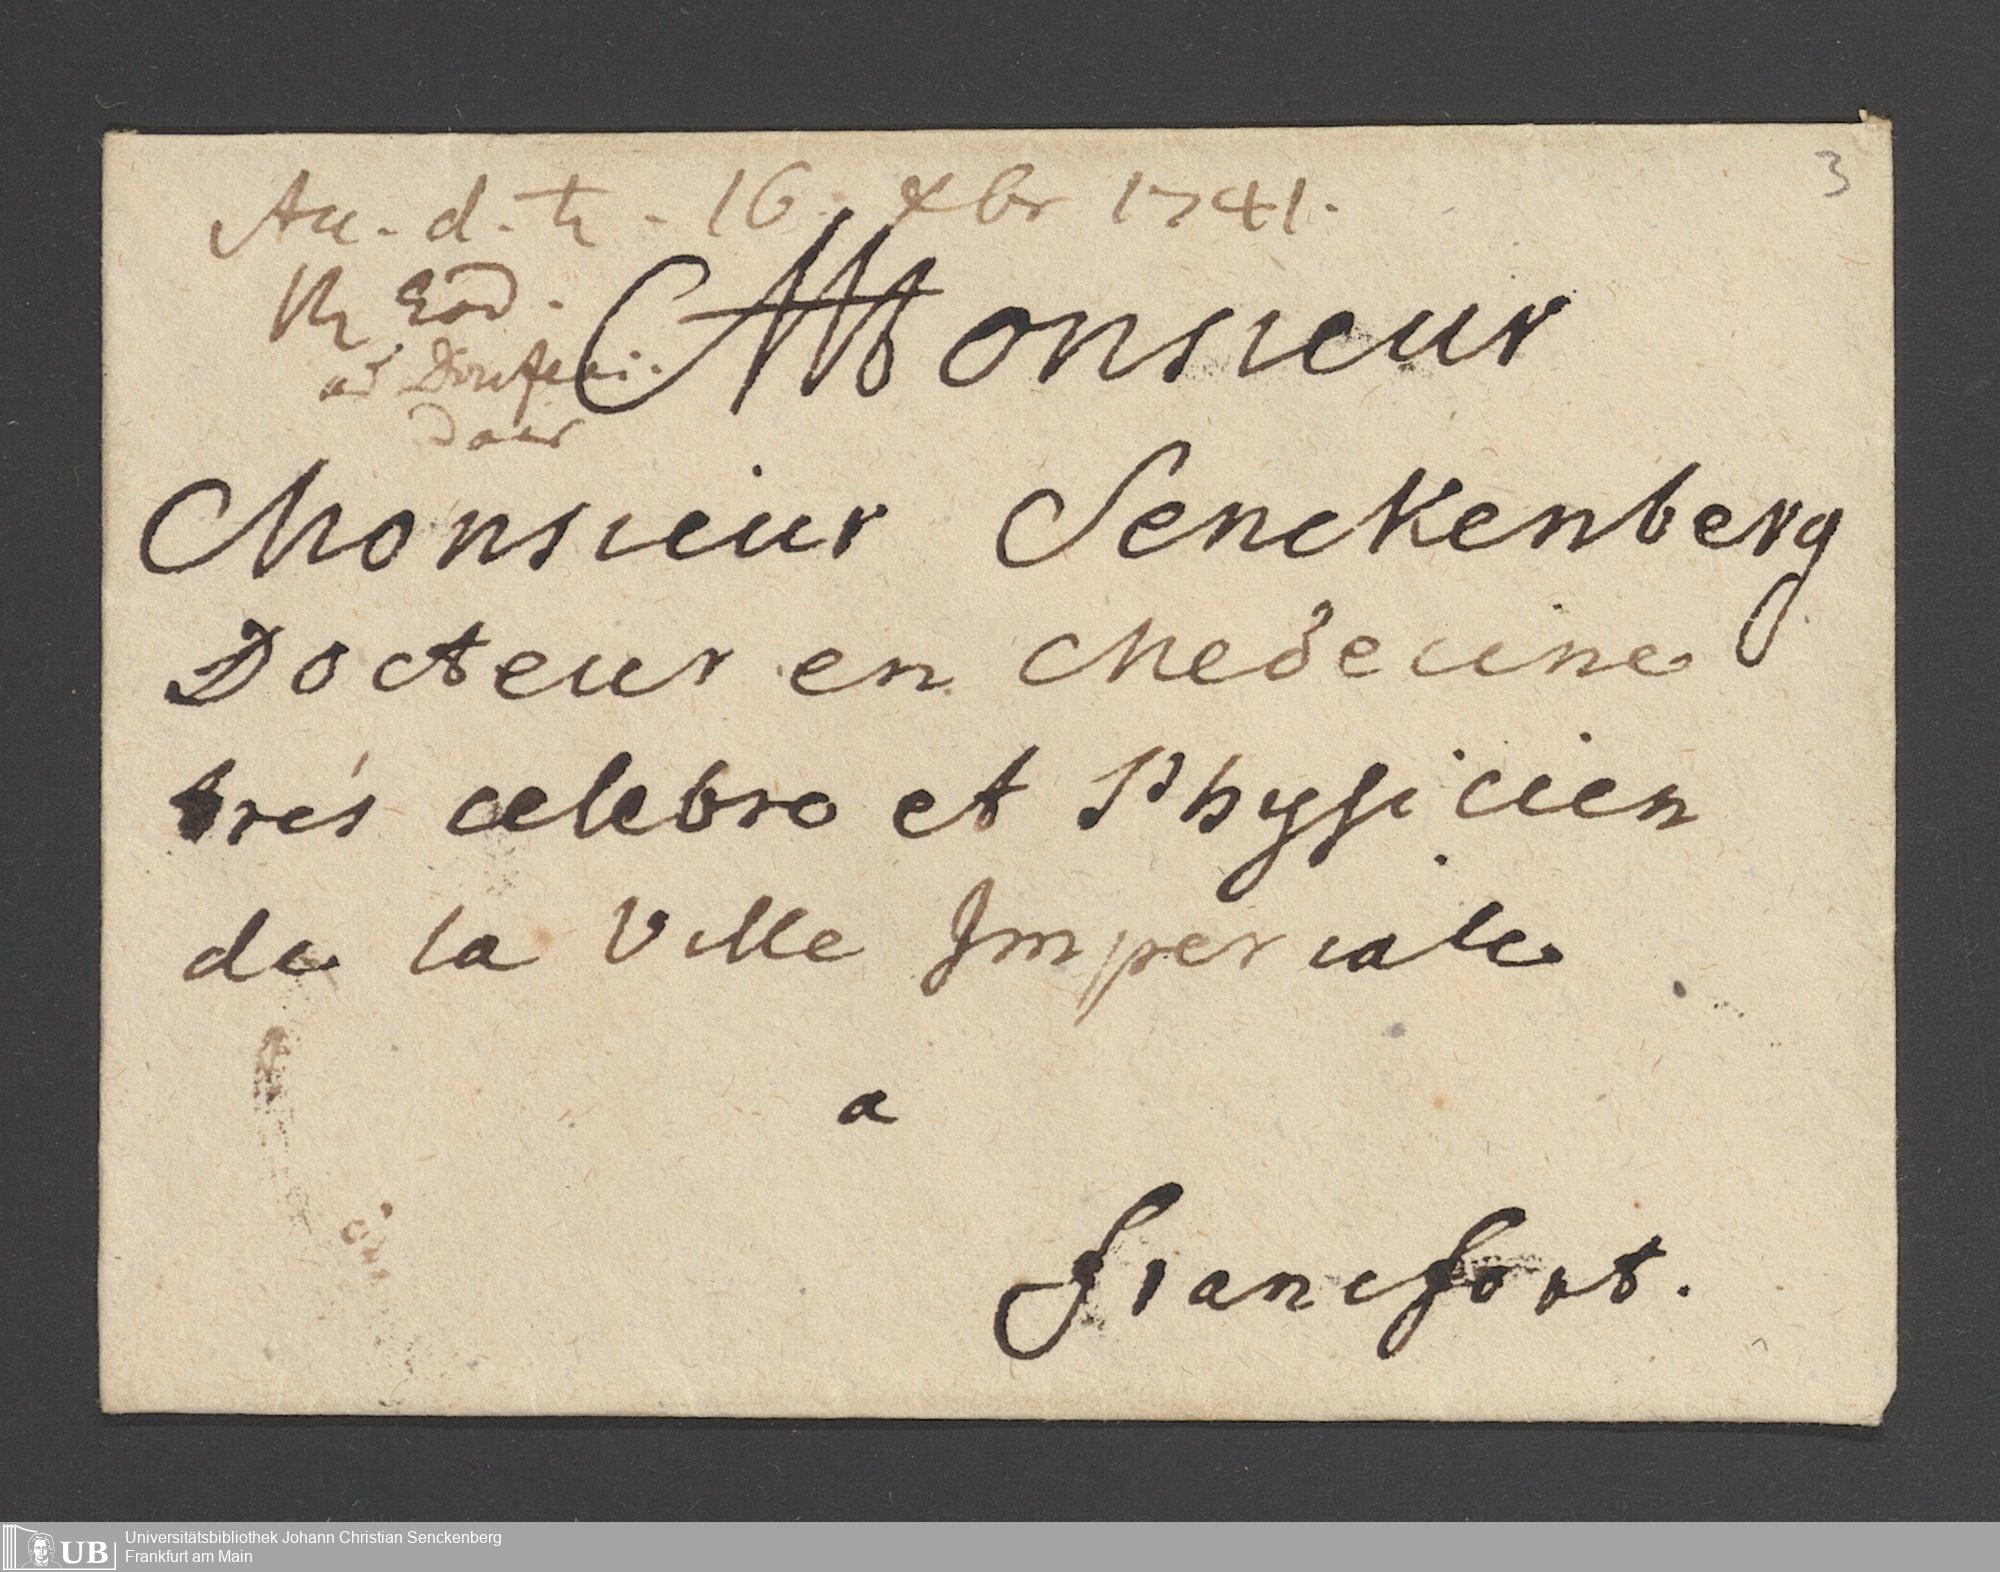 Acc. d. ♄ . 16. Xbr 1741.
3
Eod.
ad
Monsieur
Monsieur Senckenberg
Docteur en Medecine
trés celebre et Physicien
de la Ville Imperiale
a
Francfort.
UB Universitätsbibliothek Johann Christian Senckenberg
Frankfurt am Main